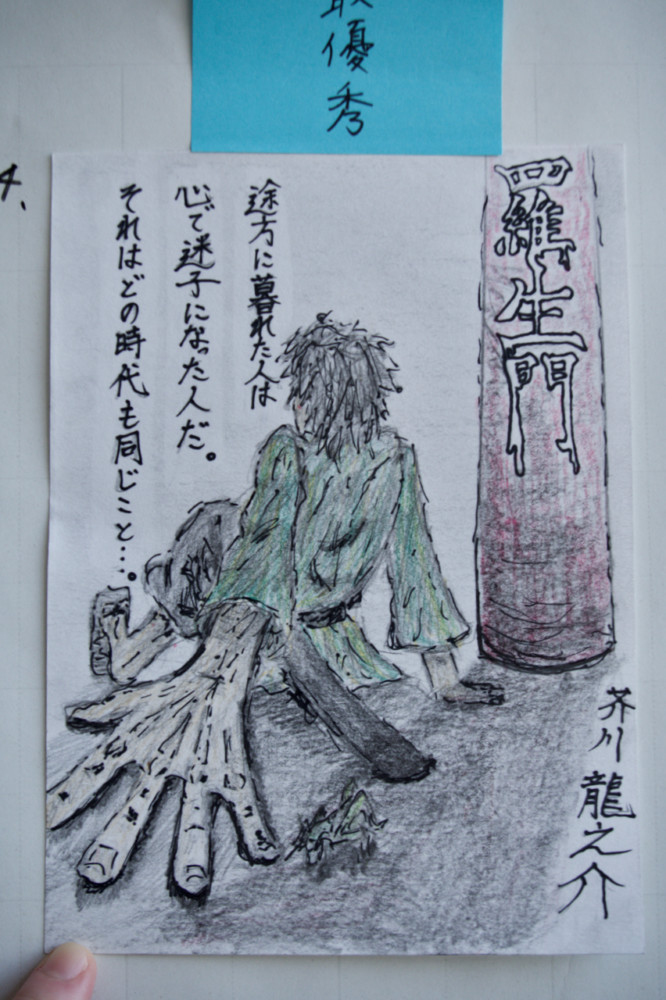 最優秀
4、
羅生門
途方に暮れた人は
心で迷子になった人だ。
それはどの時代も同じこと…。
芥川龍之介